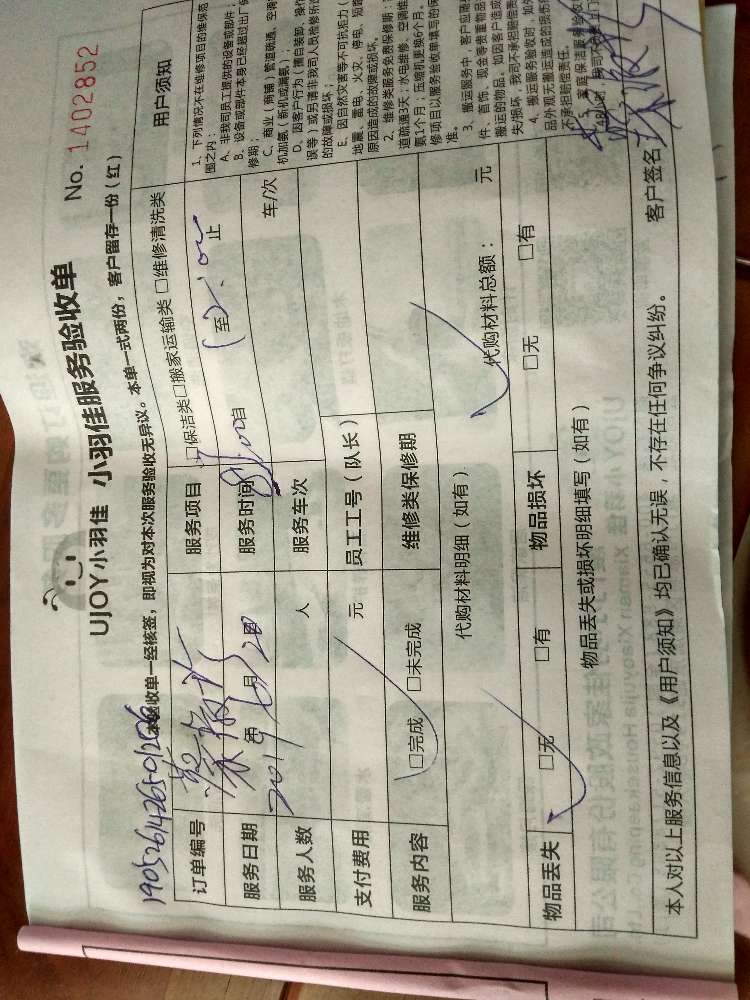 UJOY小羽佳 小羽佳服务验收单
No. 1402852
本验收单一经核签，即视为对本次服务验收无异议。本单一式两份，客户留存一份（红）
订单编号
服务项目 □保洁类 □搬家运输类 □维修清洗类
服务日期 年 月 日
服务时间 自 至 12:00 止
服务人数 人
服务车次 车/次
支付费用 元
员工工号（队长）
服务内容 □完成 □未完成
维修类保修期
代购材料明细（如有）
代购材料总额： 元
物品丢失 □无 □有
物品损坏 □无 □有
物品丢失或损坏明细填写（如有）
用户须知
1、下列情况不在维修项目的维保范
围之内：
A、非我司员工提供的设备或部件；
B、设备或部件本身已经超过出厂保
修期；
C、商业（商铺）管道疏通、空调
机加氨（新机或漏氨）；
D、因客户行为（擅自装卸、操作
误等）或另请非我司人员检修所造
的故障或损坏；
E、因自然灾害等不可抗拒力（
地震、雷电、火灾、停电、短路
原因造成的故障或损坏。
2、维修类服务免费保修期：
道疏通3天；水电维修、空调维
氨1个月；压缩机更换6个月。
修项目以服务验收单填写的保
准。
3、搬运服务中，客户应随
件、首饰、现金等贵重物品
搬运的物品。如因客户造成
失/损坏，我司不承担赔偿责
4、搬运服务验收时，如外
品外观无搬运造成的损伤
不承担赔偿责任。
5、家庭保洁服务验收
本人对以上服务信息以及《用户须知》均已确认无误，不存在任何争议纠纷。
客户签名